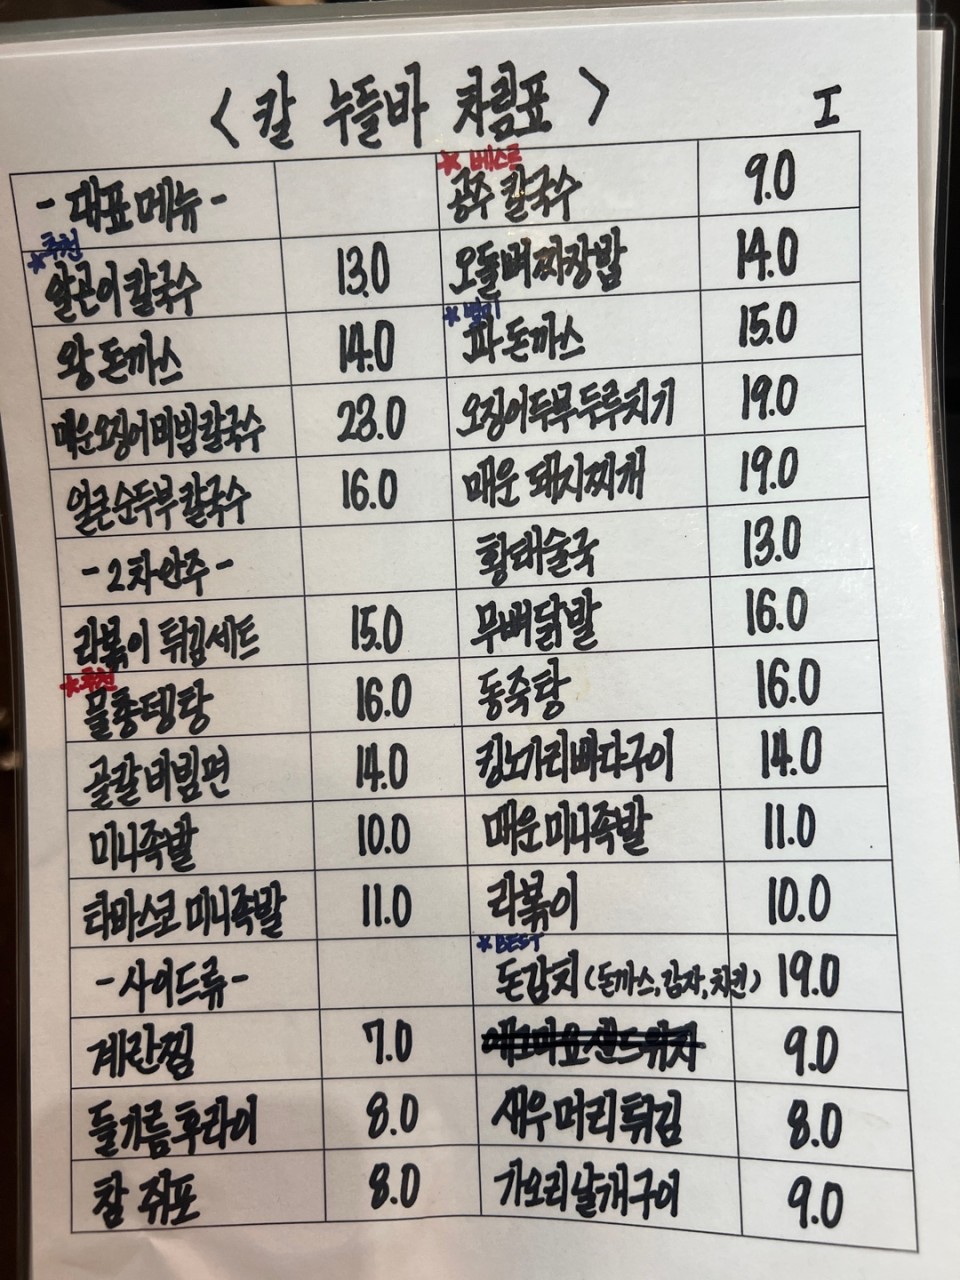 < 칼 누들바 차림표 >
I
- 대표메뉴 -
* 베스트
공주 칼국수 9.0
* 추천
알곤이 칼국수 13.0
오돌뼈짜장밥 14.0
왕 돈까스 14.0
파 돈까스 15.0
매운오징어비빔칼국수 23.0
오징어두부두루치기 19.0
얼큰순두부칼국수 16.0
매운 돼지찌개 19.0
- 2차안주 -
황태술국 13.0
라볶이 튀김세트 15.0
무뼈닭발 16.0
* 추천
물총뎅탕 16.0
동죽탕 16.0
골칼비빔면 14.0
킹노가리빠다구이 14.0
미니족발 10.0
매운미니족발 11.0
타바스코 미니족발 11.0
라볶이 10.0
- 사이드류 -
* BEST
돈감치 (돈까스, 감자, 치킨) 19.0
계란찜 7.0
9.0
들기름후라이 8.0
새우머리튀김 8.0
참 쥐포 8.0
가오리날개구이 9.0